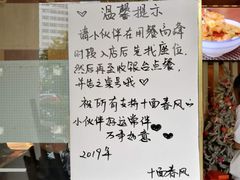 温馨提示
请小伙伴在用餐高峰
时段入店后先找座位,
然后再至收银台点餐,
并告之桌号哦♡
祝所有支持十面春风
小伙伴好运常伴
万事如意
2019年
十面春风